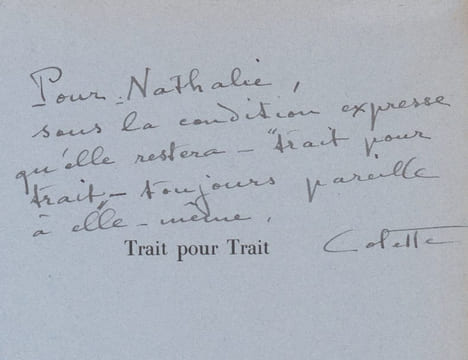 Pour Nathalie,
sous la condition expresse
qu'elle restera – "trait pour
trait" – toujours pareille
à elle-même.
Trait pour Trait
Colette